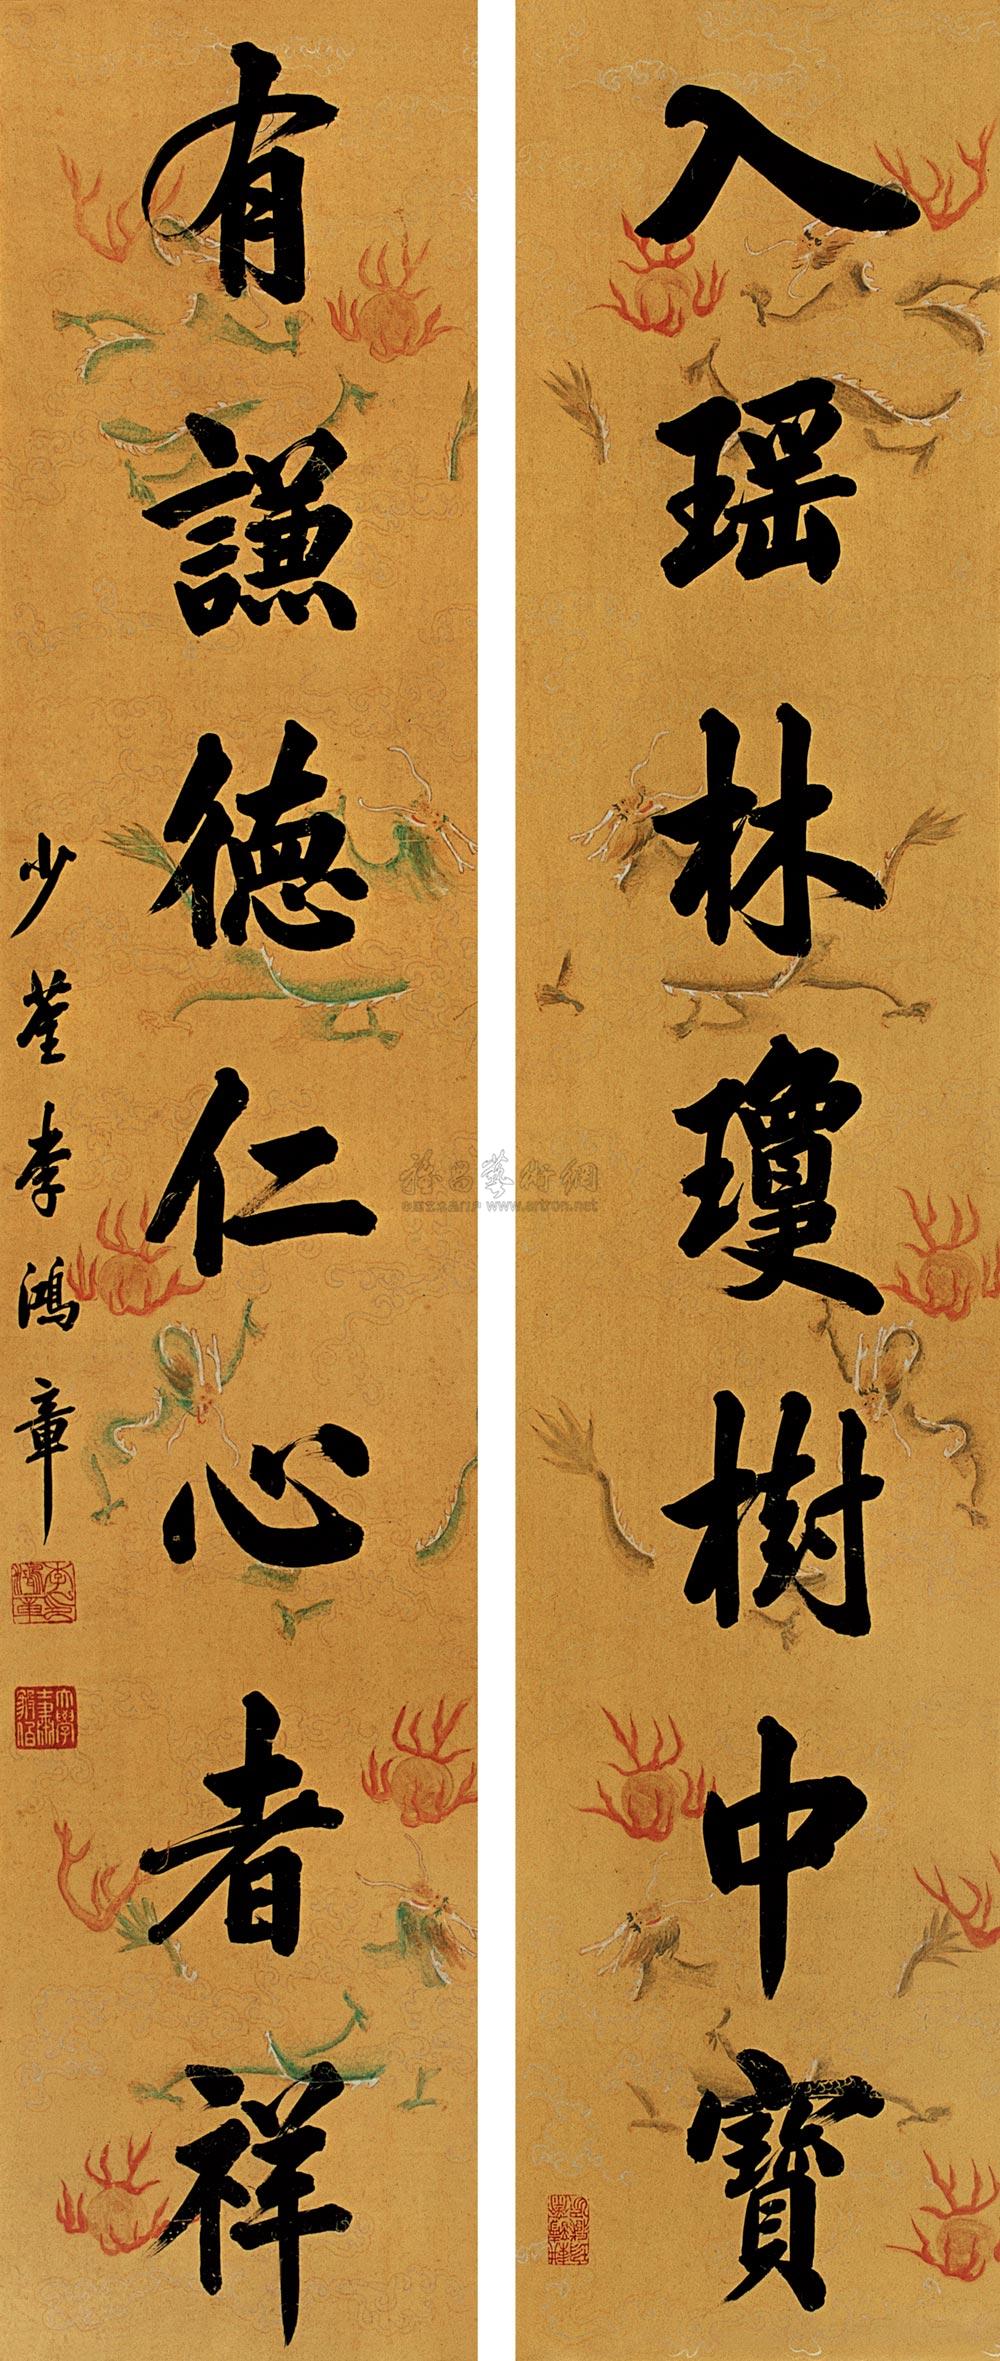 入瑶林瓊樹中寳
有謙德仁心者祥
少荃李鴻章
雅昌藝術網
www.artron.net